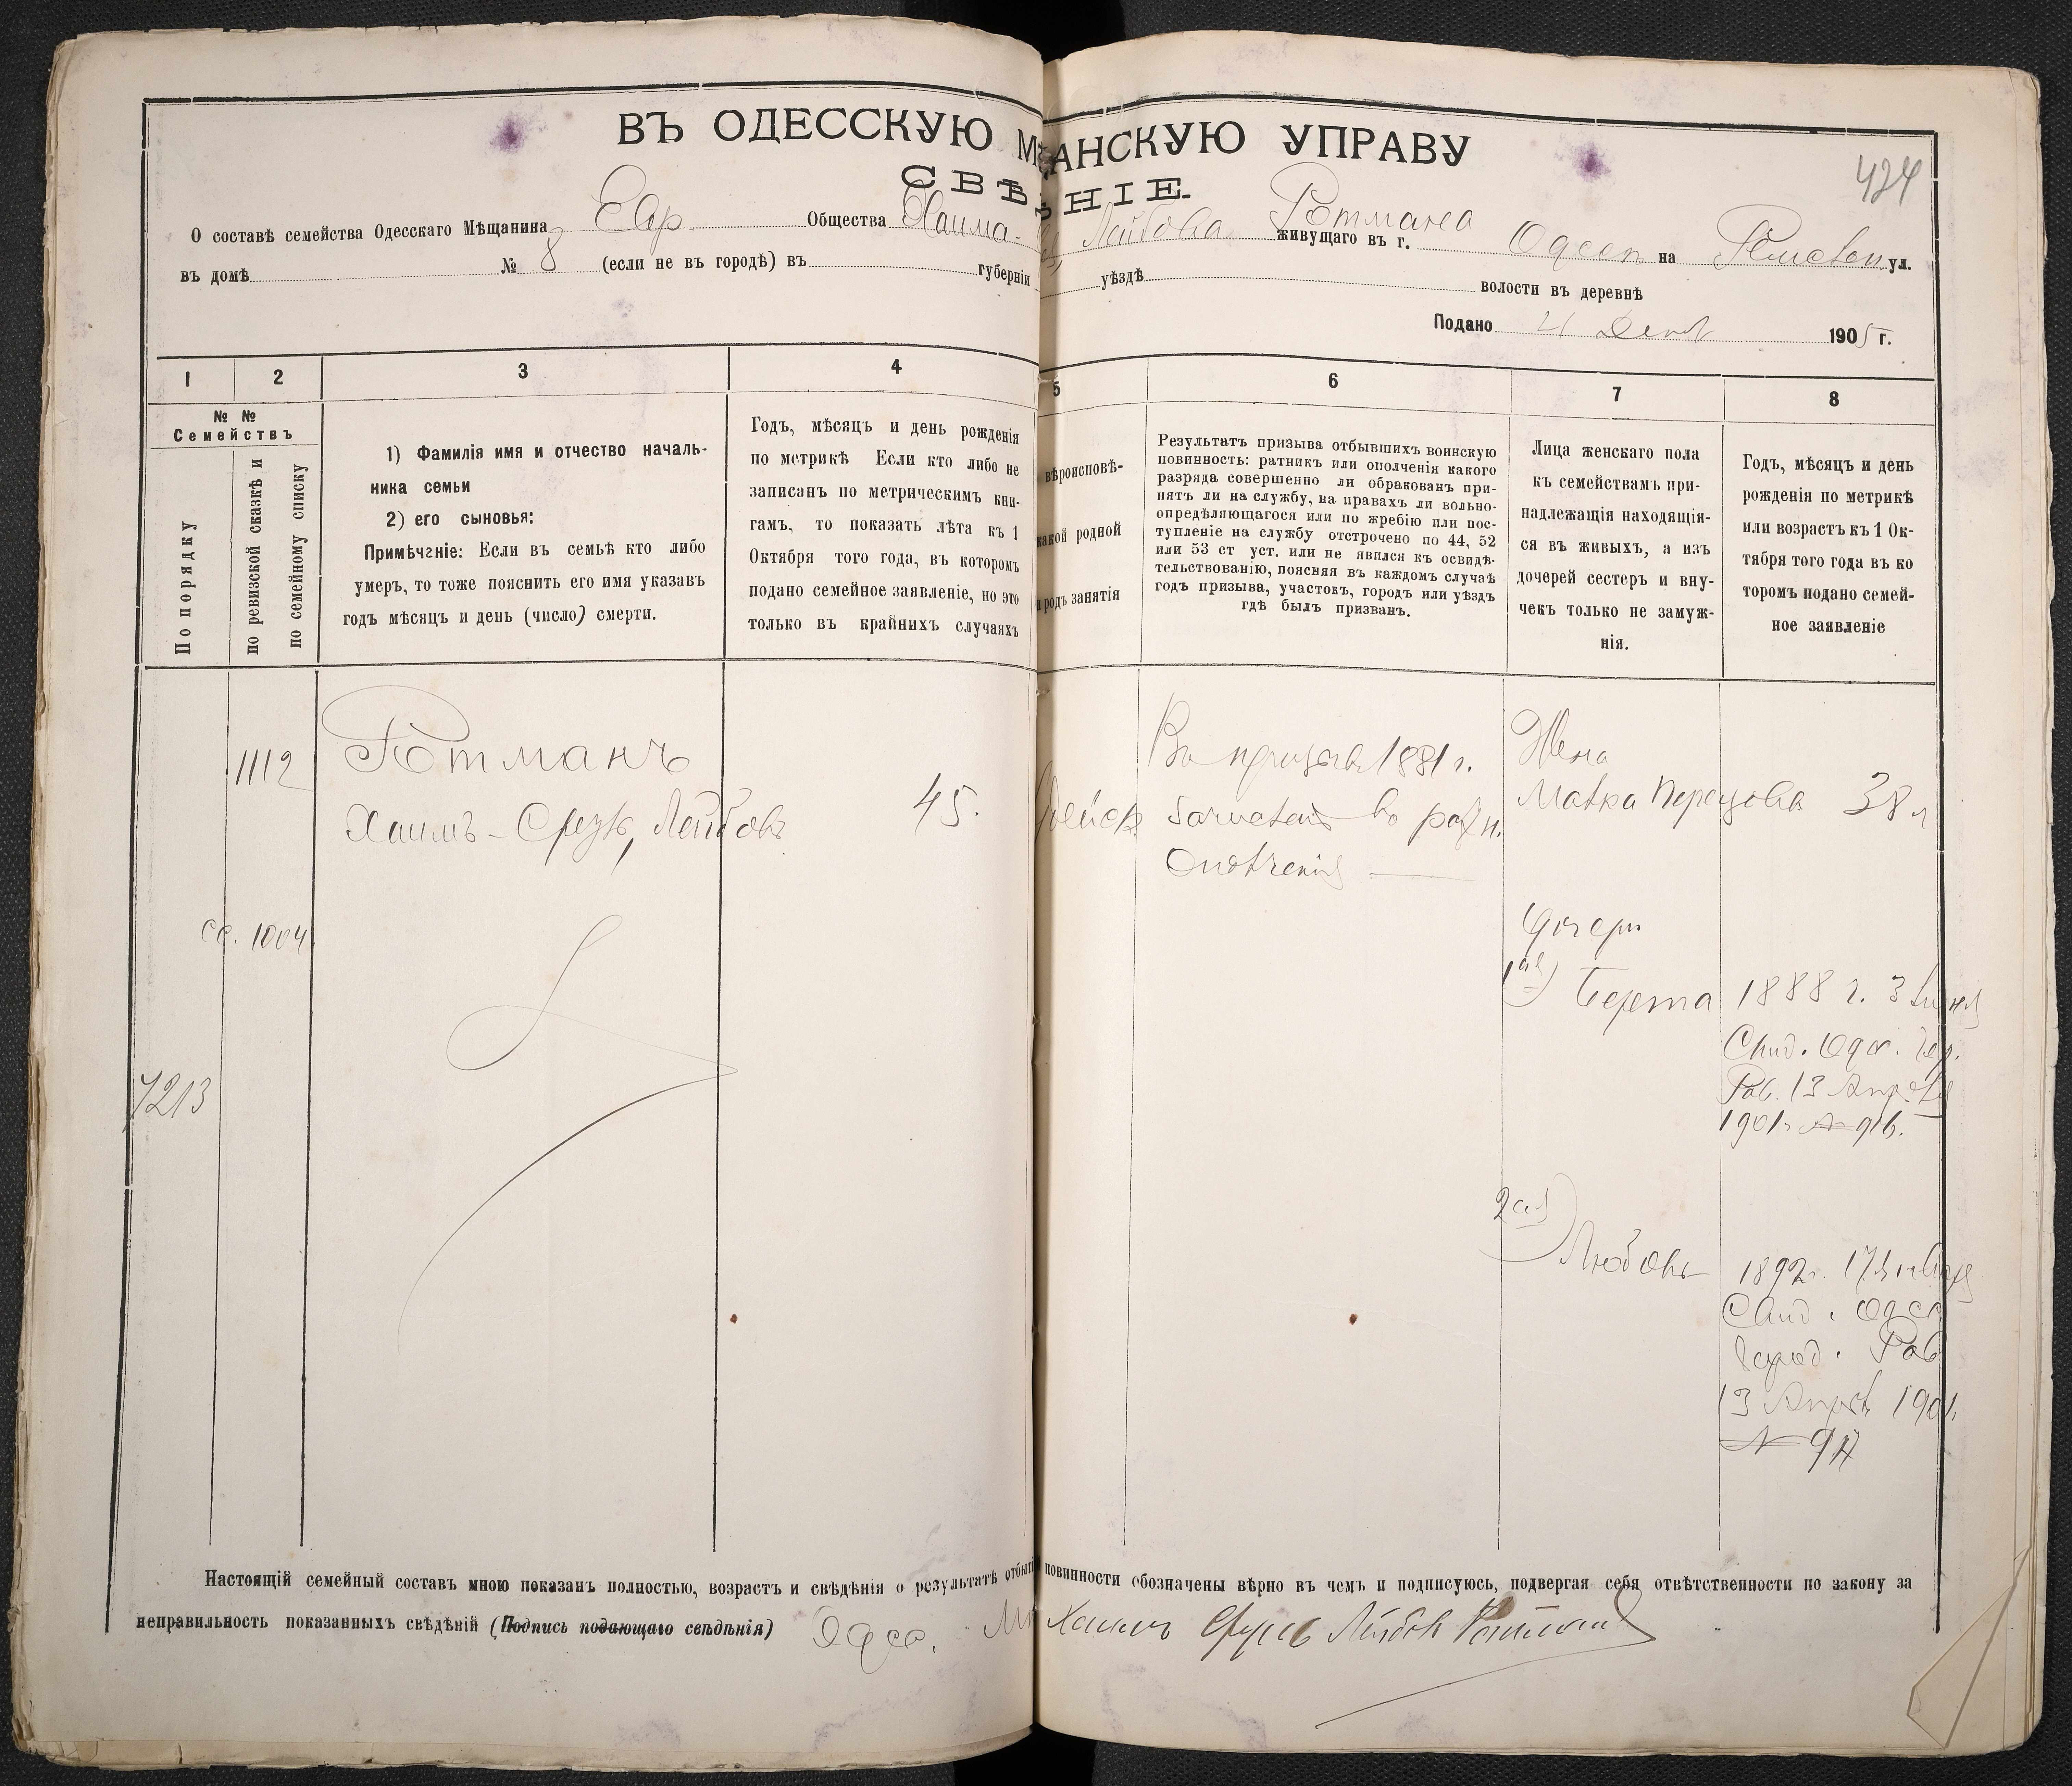 ВЪ ОДЕССКУЮ М АНСКУЮ УПРАВУ
424
СВѢ НІЕ.
О составѣ семейства Одесскаго Мѣщанина Евр. Общества Хаима- Лейбова Ротмана живущаго въ г. Одессѣ на ул.
въ домѣ № 8 (если не въ городѣ) въ губерніи уѣздѣ волости въ деревнѣ
Подано 21 1905 г.
1 2 3 4 5 6 7 8
№ №
Семействъ
По порядку
по ревизской сказкѣ и
по семейному списку
1) Фамилія имя и отчество началь-
ника семьи
2) его сыновья:
Примѣчаніе: Если въ семьѣ кто либо
умеръ, то тоже пояснить его имя указавъ
годъ мѣсяцъ и день (число) смерти.
Годъ, мѣсяцъ и день рожденія
по метрикѣ Если кто либо не
записанъ по метрическимъ кни-
гамъ, то показать лѣта къ 1
Октября того года, въ которомъ
подано семейное заявленіе, но это
только въ крайнихъ случаяхъ
вѣроисповѣ-
какой родной
и родъ занятія
Результатъ призыва отбывшихъ воинскую
повинность: ратникъ или ополченія какого
разряда совершенно ли обракованъ при-
нятъ ли на службу, на правахъ ли вольно-
опредѣляющагося или по жребію или пос-
тупленіе на службу отстрочено по 44, 52
или 53 ст уст. или не явился къ освидѣ-
тельствованію, поясняя въ каждомъ случаѣ
годъ призыва, участокъ, городъ или уѣздъ
гдѣ былъ призванъ.
Лица женскаго пола
къ семействамъ при-
надлежащія находящія-
ся въ живыхъ, а изъ
дочерей сестеръ и вну-
чекъ только не замуж-
нія.
Годъ, мѣсяцъ и день
рожденія по метрикѣ
или возрастъ къ 1 Ок-
тября того года въ ко
торомъ подано семей-
ное заявленіе
1112
Ротманъ
Хаимъ-Сруль, Лейбовъ
45.
Въ призывъ 1881 г.
зачисленъ въ ратн.
Ополченія
Жена
Малка Перецова 38 л
сс. 1004
7213
Дочери
1ая) Берта 1888 г. 3 Іюня
Свид. Одес. Гор.
Рав. 13 Апрѣля
1901г. № 916.
2ая) Любовь 1892г. 17 Января
Свид. Одес
Город. Рав
13 Апрѣл 1901.
№ 917
Настоящій семейный составъ мною показанъ полностью, возрастъ и свѣдѣнія о результатѣ отбытія повинности обозначены вѣрно въ чемъ и подписуюсь, подвергая себя отвѣтственности по закону за
неправильность показанныхъ свѣдѣній (Подпись подающаго свѣдѣнія) Одес. Хаимъ Сруль Лейбов Ротман